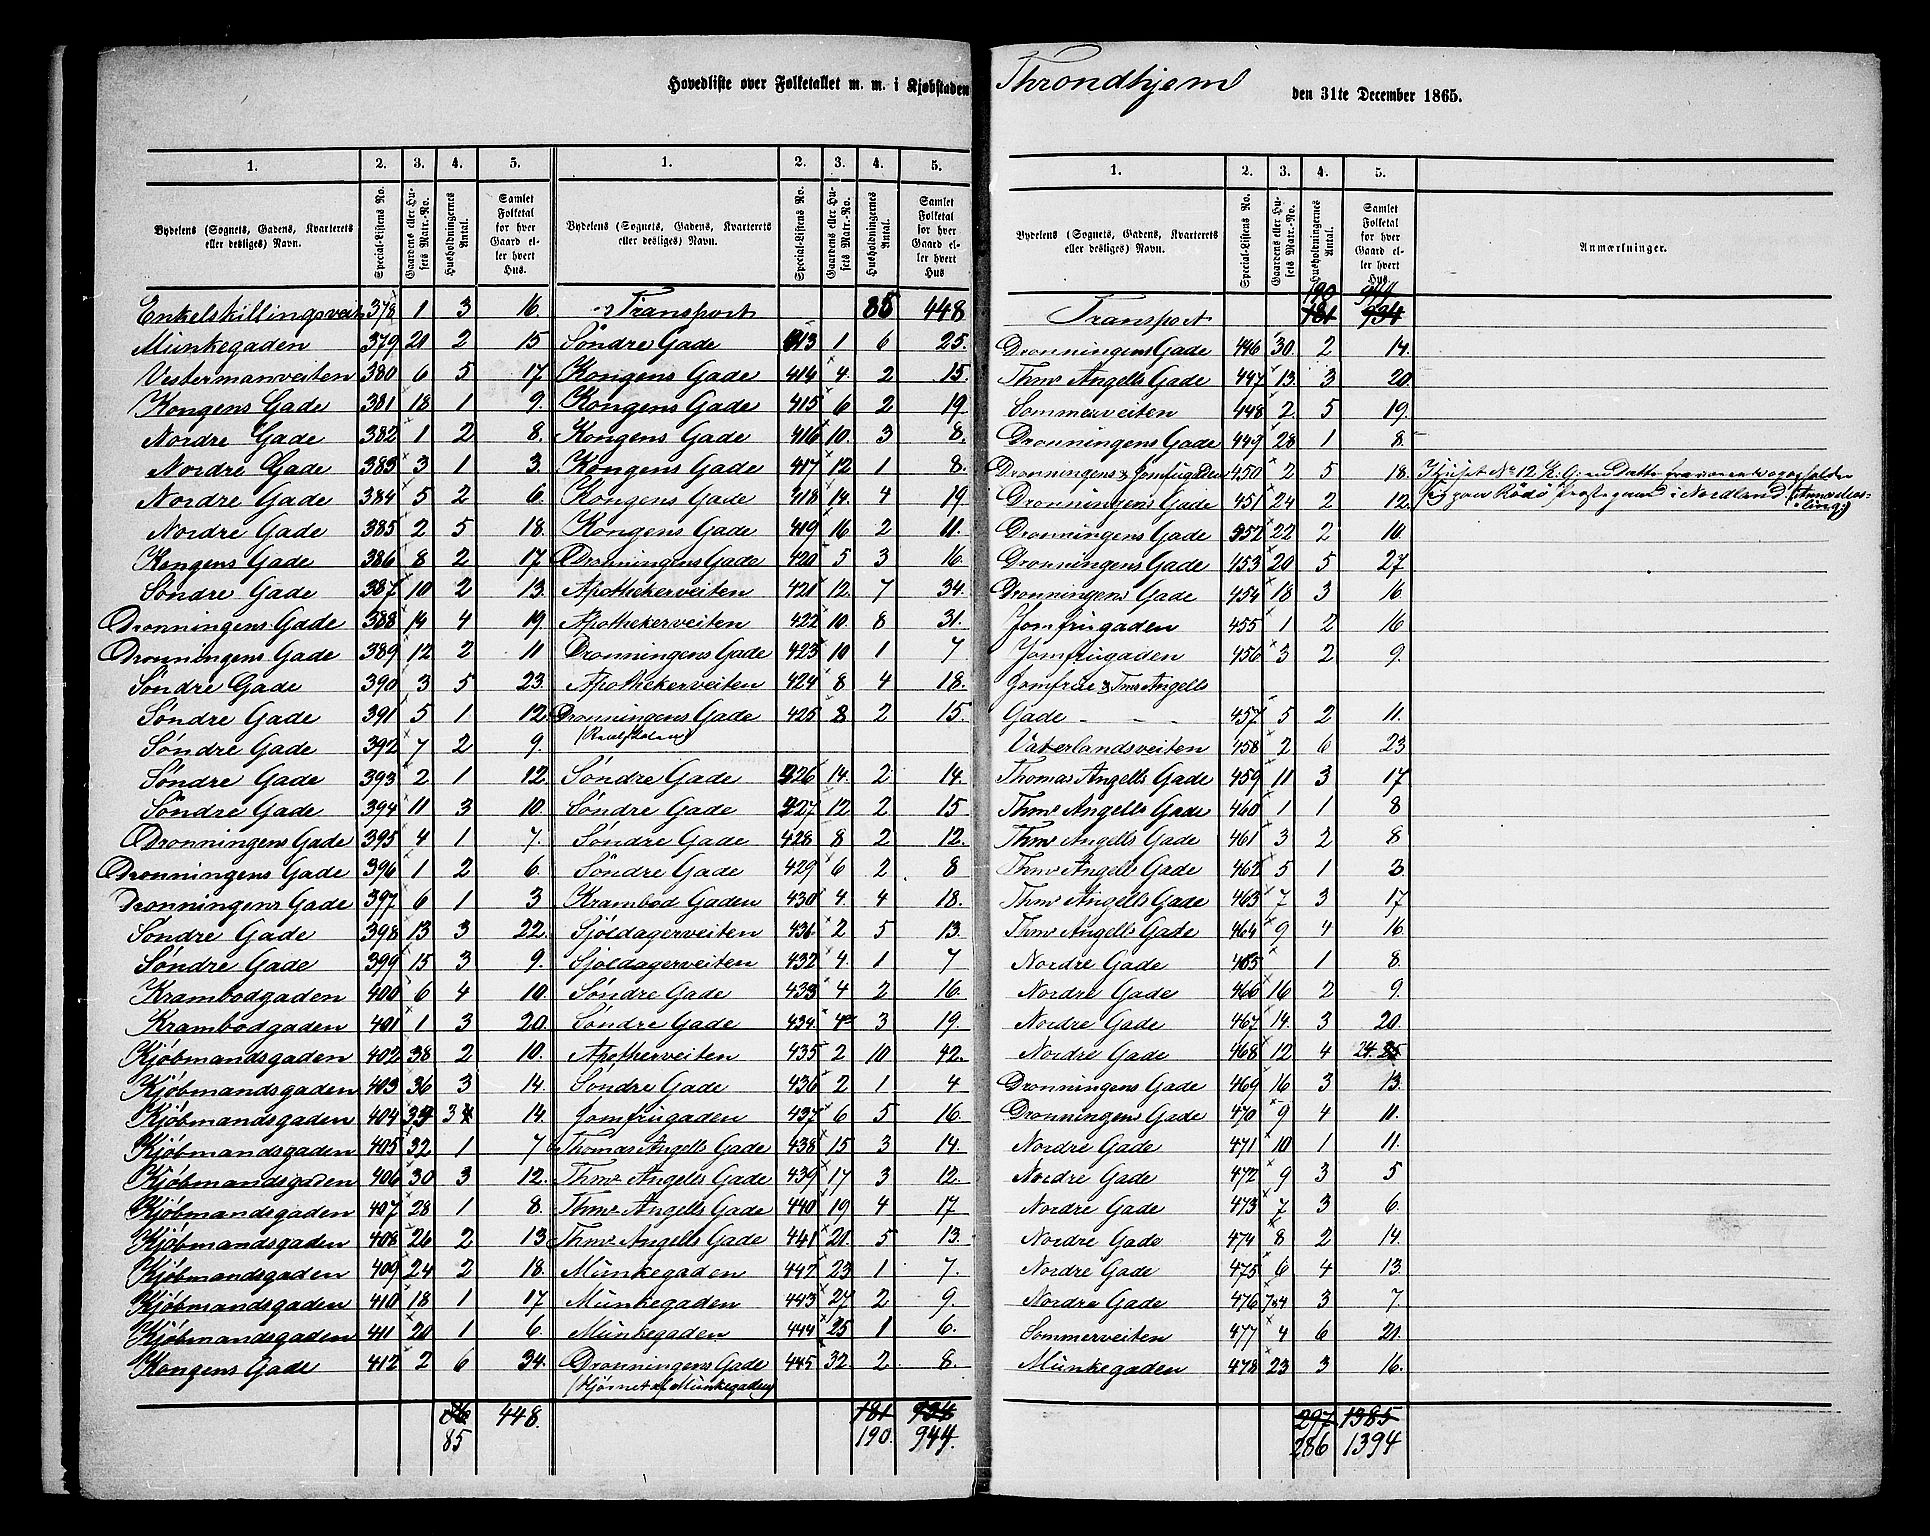 Hovedliste over Folketallet m. m. i Kjøbstaden Throndhjem den 31te December 1865.
1. 2. 3. 4. 5. 1. 2. 3. 4. 5.
Bydelens (Sognets, Gadens, Kvarterets eller desliges) Navn. Special-Listens No. Gaardens eller Husets Matr.-No. Husholdningernes Antal. Samlet Folketal for hver Gaard eller hvert Hus. Bydelens (Sognets, Gadens, Kvarterets eller desliges) Navn. Special-Listens No. Gaardens eller Husets Matr.-No. Husholdningernes Antal. Samlet Folketal for hver Gaard eller hvert Hus
Enkelskillingsveit 378 1 3 16.
Munkegaden 379 20 2 15
Vestermanveiten 380 6 5 17
Kongens Gade 381 18 1 9.
Nordre Gade 382 1 2 8.
Nordre Gade 383 3 1 3.
Nordre Gade 384 5 2 6.
Nordre Gade 385 2 5 18.
Kongens Gade 386 8 2 17
Søndre Gade 387 10 2 13.
Dronningens Gade 388 14 4 19
Dronningens Gade 389 12 2 11
Søndre Gade 390 3 5 23.
Søndre Gade 391 5 1 12.
Søndre Gade 392 7 2 9.
Søndre Gade 393 2 1 12.
Søndre Gade 394 11 3 10.
Dronningens Gade 395 4 1 7.
Dronningens Gade 396 1 2 6.
Dronningens Gade 397 6 1 3
Søndre Gade 398 13 3 22.
Søndre Gade 399 15 3 9.
Krambodgaden 400 6 4 10.
Krambodgaden 401 1 3 20.
Kjøbmandsgaden 402 38 2 10.
Kjøbmandsgaden 403 36 3 14.
Kjøbmandsgaden 404 34 3 14.
Kjøbmandsgaden 405 32 1 7
Kjøbmandsgaden 406 30 3 12.
Kjøbmandsgaden 407 28 1 8.
Kjøbmandsgaden 408 26 2 13
Kjøbmandsgaden 409 24 2 18.
Kjøbmandsgaden 410 18 1 17
Kjøbmandsgaden 411 20 1 6.
Kongens Gade 412 2 6 34.
448.
85
Transport 85 448
Søndre Gade 413 1 6 25.
Kongens Gade 414 4 2 15.
Kongens Gade 415 6 2 19.
Kongens Gade 416 10. 3 8.
Kongens Gade 417 12 1 8.
Kongens Gade 418 14. 4 19
Kongens Gade 419 16 2 11.
Dronningens Gade 420 5 3 16.
Apothekerveiten 421 12. 7 34.
Apothekerveiten 422 10. 8 31.
Dronningens Gade 423 10 1 7
Apothekerveiten 424 8 4 18.
Dronningens Gade 425 8 2 15.
Søndre Gade 426 14. 2 14.
Søndre Gade 427 12 2 15
Søndre Gade 428 8 2 12.
Søndre Gade 429 6 2 8
Krambod Gaden 430 4. 4 18.
Sjøldagerveiten 431 2 5 13.
Sjøldagerveiten 432 4. 1 7
Søndre Gade 433 4 2 16.
Søndre Gade 434 3 19.
Apotherveiten 435 2 10 42.
Søndre Gade 436 2 1 4
Jomfrugaden 437 6 5 16.
Thomas Angells Gade 438 15 3 14.
Thms Angells Gade 439 17 3 12.
Thms Angells Gade 440 19 4 17
Thms Angells Gade 441 21. 5 13.
Munkegaden 442 23 1 7.
Munkegaden 443 27 2 9.
Munkegaden 444 25 1 6.
Dronningens Gade 445 32 2 8.
(Hjørnet af Munkegaden)
181 934
190. 944.
1. 2. 3. 4. 5.
Bydelens (Sognets, Gadens, Kvarterets eller desliges) Navn. Special-Listens No. Gaardens eller Husets Matr.-No. Husholdningernes Antal. Samlet Folketal for hver Gaard eller hvert Hus. Anmærkninger.
190 944
Transport 181 934
Dronningens Gade 446 30. 2 14.
Thms Angells Gade 447 13. 3 20
Sommerveiten 448 2. 5 19.
Dronningens Gade 449 28 1 8.
Dronningens & Jomfrugaden 450 2 5 18.
Dronningens Gade 451 24 2 12.
Dronningens Gade 452 22 2 10.
Dronningens Gade 453 20 5 27
Dronningens Gade 454 18 3 16
Jomfrugaden 455 1 2 16
Jomfrugaden 456 3 2 9.
Jomfrue & Tms Angells
Gade - - - 457 5 2 11.
Vaterlandsveiten 458 2 6 23
Thomas Angells Gade 459 11 3 17
Thms Angells Gade 460 1 1 8
Thms Angells Gade 461 3 2 8
Thms Angells Gade 462 5 1 3.
Thms Angells Gade 463 7 3 17
Thms Angells Gade 464 9 4 16
Nordre Gade 465 1 8.
Nordre Gade 466 16 2 9.
Nordre Gade 467 14. 3 20.
Nordre Gade 468 12 4 24.
Dronningens Gade 469 16 3 13.
Dronningens Gade 470 9 4 11.
Nordre Gade 471 10 1 11.
Nordre Gade 472 9 3 5
Nordre Gade 473 7 3 6.
Nordre Gade 474 8 2 14.
Nordre Gade 475 6 4 13.
Nordre Gade 476 3 7.
Sommerveiten 477 4 6 21.
Munkegaden 478 23 3 16.
297 1385
286 1394